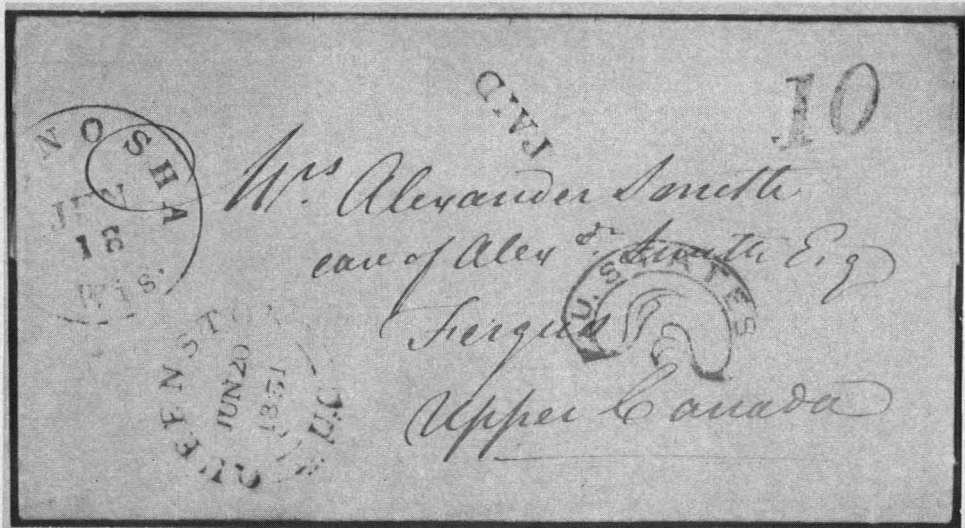 PAID
10
NOSHA
18
WIS.
Mrs. Alexander Smith
care of Alexdr Smith Esq
Fergus
Upper Canada
U.STATES
QUEENSTO
JUN 20
1851